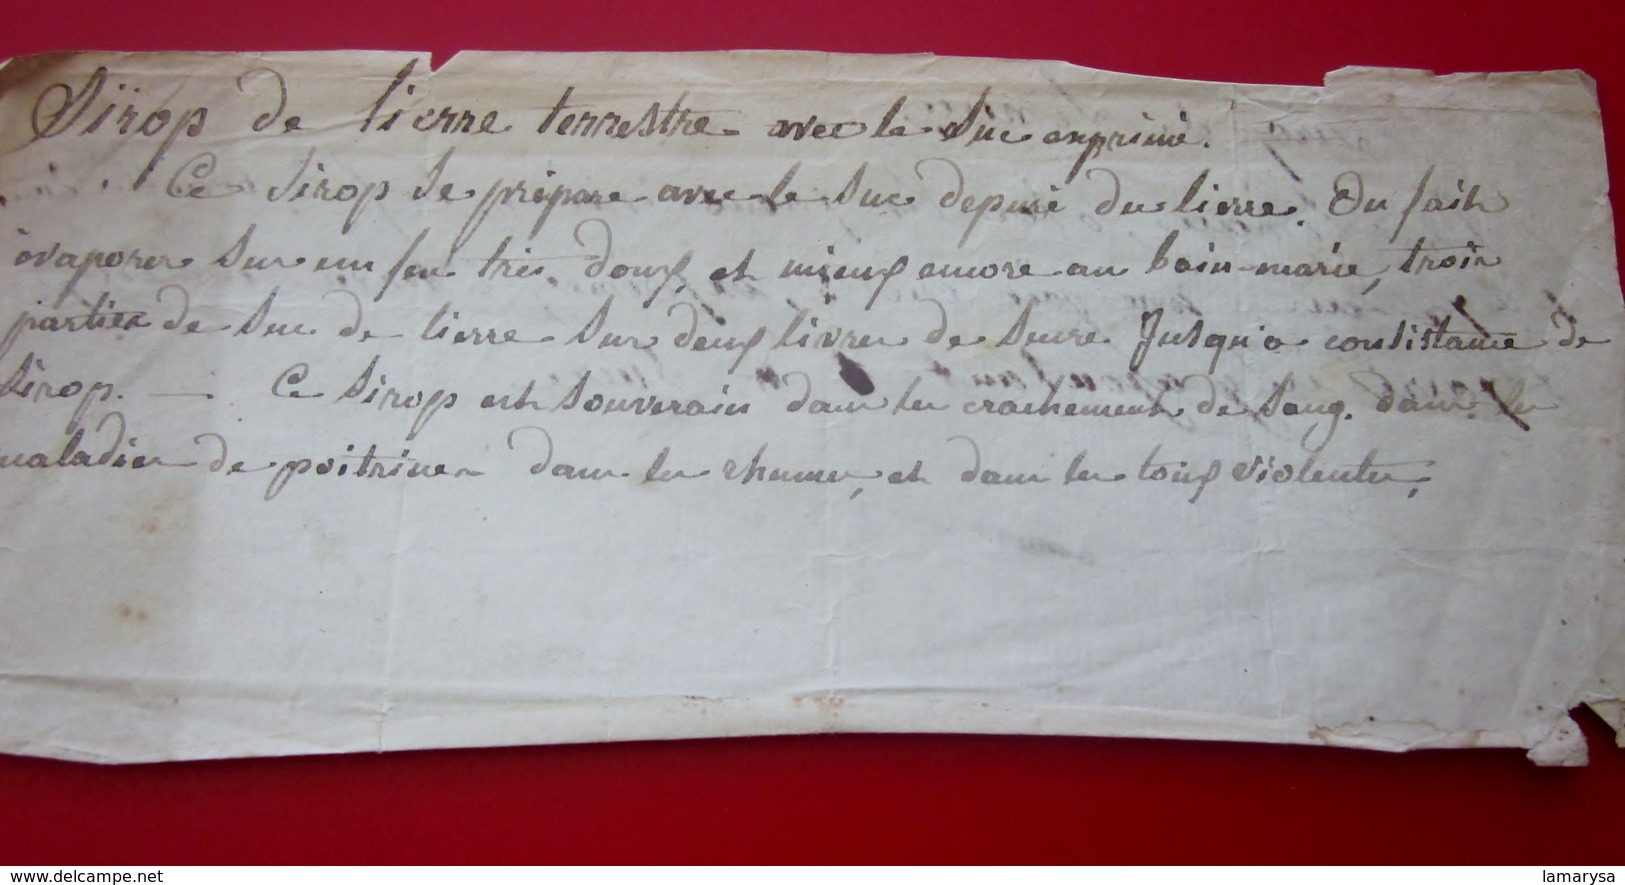 Sirop de lierre terrestre avec le Suc exprimé.
Ce Sirop Se prépare avec le Suc depuré du lierre. On fait
évaporer Sur un feu très doux, et mieux encore au bain-marie, trois
parties de Suc de lierre Sur deux livres de Sucre Jusqu'a consistance de
Sirop. — Ce Sirop est Souverain dans les crachements de Sang. dans les
maladies de poitrines dans les rhumes, et dans les toux violentes,
www.delcampe.net
lamarysa